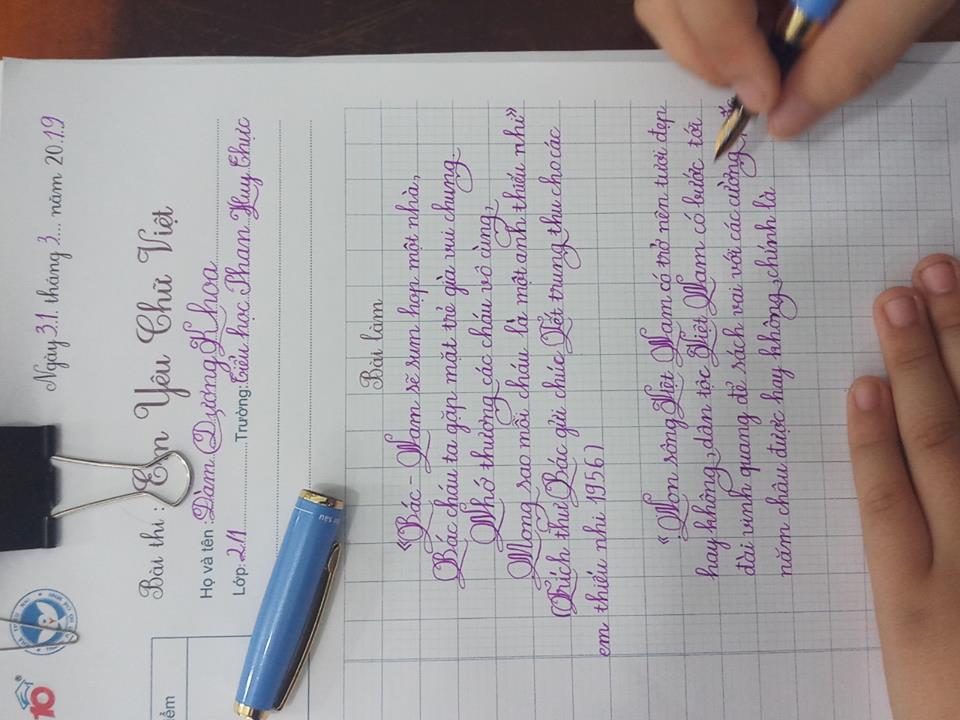 Ngày 31 tháng 3 năm 2019
Bài thi : Em Yêu Chữ Việt
Họ và tên : Đàm Dương Khoa
Lớp: 2/1 Trường: Tiểu học Phan Huy Thực
Bài làm
“Bác - Nam sẽ sum họp một nhà,
Bác cháu ta gặp mặt trẻ già vui chung.
Nhớ thương các cháu vô cùng,
Mong sao mỗi cháu là một anh thiếu nhi”
(Trích thư Bác gửi chúc Tết trung thu cho các
em thiếu nhi 1956)
“Non sông Việt Nam có trở nên tươi đẹp
hay không, dân tộc Việt Nam có bước tới
đài vinh quang để sách vai với các cường
năm châu được hay không, chính là